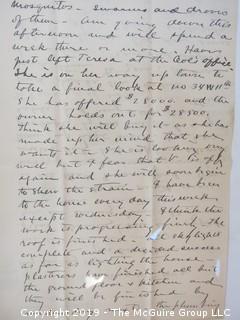 mosquitos - swarms and droves
of them - am going down this
afternoon and will spend a
week there or more. Have
just left Teresa at the Col's office
She is on her way up town to
take a final look at no 39 W 11th
She has offered $28000. and the
owner holds out for $28500.
think she will buy it as she has
made up her mind that she
wants it. She is looking very
well but I fear that
again and she will soon begin
to show the strain - I have been
to the house every day this week
except Wednesday. I think the
work is progressing finely the
roof is finished and skylight
complete and a decided success
as far as lighting the house
plasterers have finished all but
the ground floor & kitchen and
they will be finished by
the plumbing
Copyright 2019 - The McGuire Group LLC